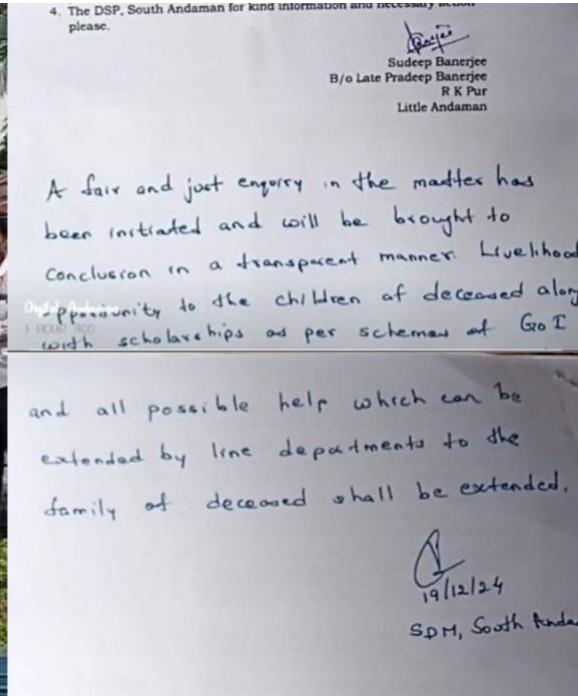 4. The DSP, South Andaman for kind information and necessary action
please.
Sudeep Banerjee
B/o Late Pradeep Banerjee
R K Pur
Little Andaman
A fair and just enquiry in the matter has
been initiated and will be brought to
conclusion in a transparent manner. Livelihood
opportunity to the children of deceased along
1 HOUR AGO
with scholarships as per schemes of GoI
and all possible help which can be
extended by line departments to the
family of deceased shall be extended.
19/12/24
SDM, South Anda